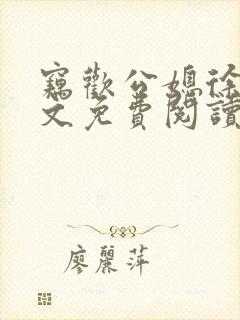 竊歡公媳徐
文免費閱讀
廖麗萍